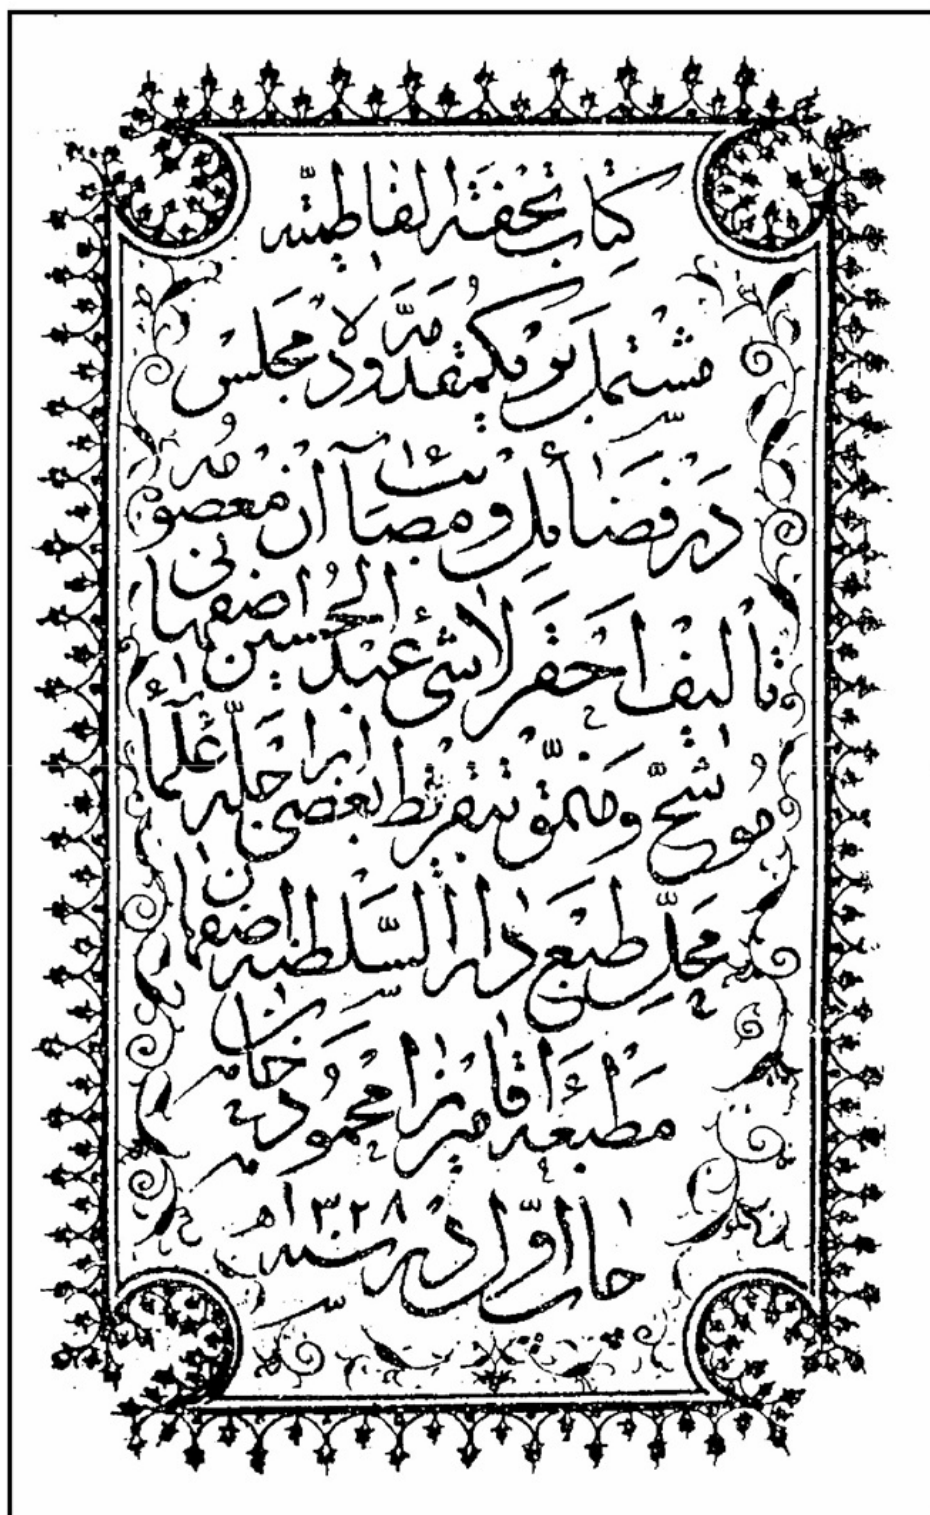 كتاب تحفة الفاطميّه
مشتمل بر يك مقدّمه و لا مجلس
در فضائل و مصائب آن معصومه
تأليف احقر لاشئ عبد الحسين اصفهانى
موشّح و منمّق بتقريظ بعضى از اجلّه علمآء
محلّ طبع دار السّلطنه اصفهان
مطبعه آقا ميرزا محمود خان
چاپ اوّل در سنه ١٣٢٨